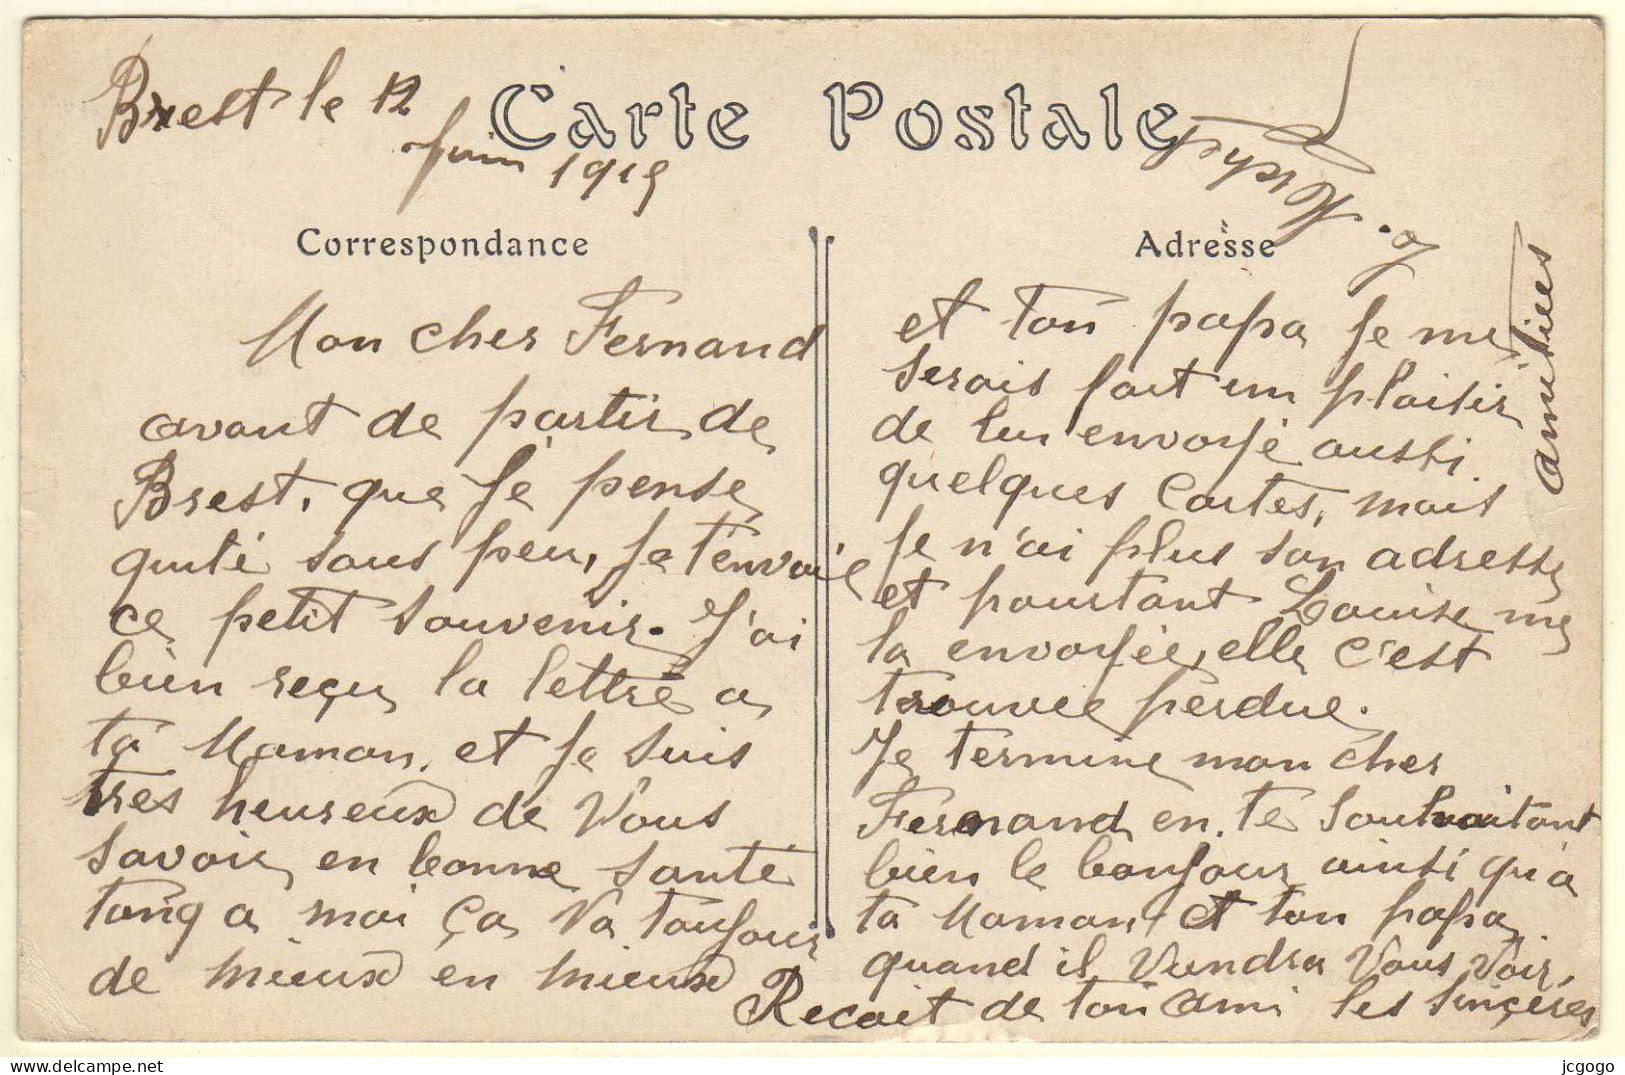 Brest le 12
Juin 1915
Carte Postale
Correspondance
Mon cher Fernand
avant de partir de
Brest, que Je pense
quité sous peu, Je t'envoie
ce petit souvenir. J'ai
bien reçu la lettre a
ta Maman, et Je suis
tres heureux de Vous
savoir en bonne santé
a moi ça Va toujours
de mieux en mieux
Adresse
et ton papa Je me
serais fait un plaisir
de lui envoyé aussi
quelques Cartes, mais
Je n'ai plus son adresse
et pourtant Louise me
la envoyée, elle c'est
trouvee perdue.
Je termine mon cher
Fernand en te Souhaitant
bien le bonjour ainsi qu'a
ta Maman, et ton papa
quand il Vundra Vous Voir.
Recoit de ton ami les sinçeres
amitiees
jcgogo